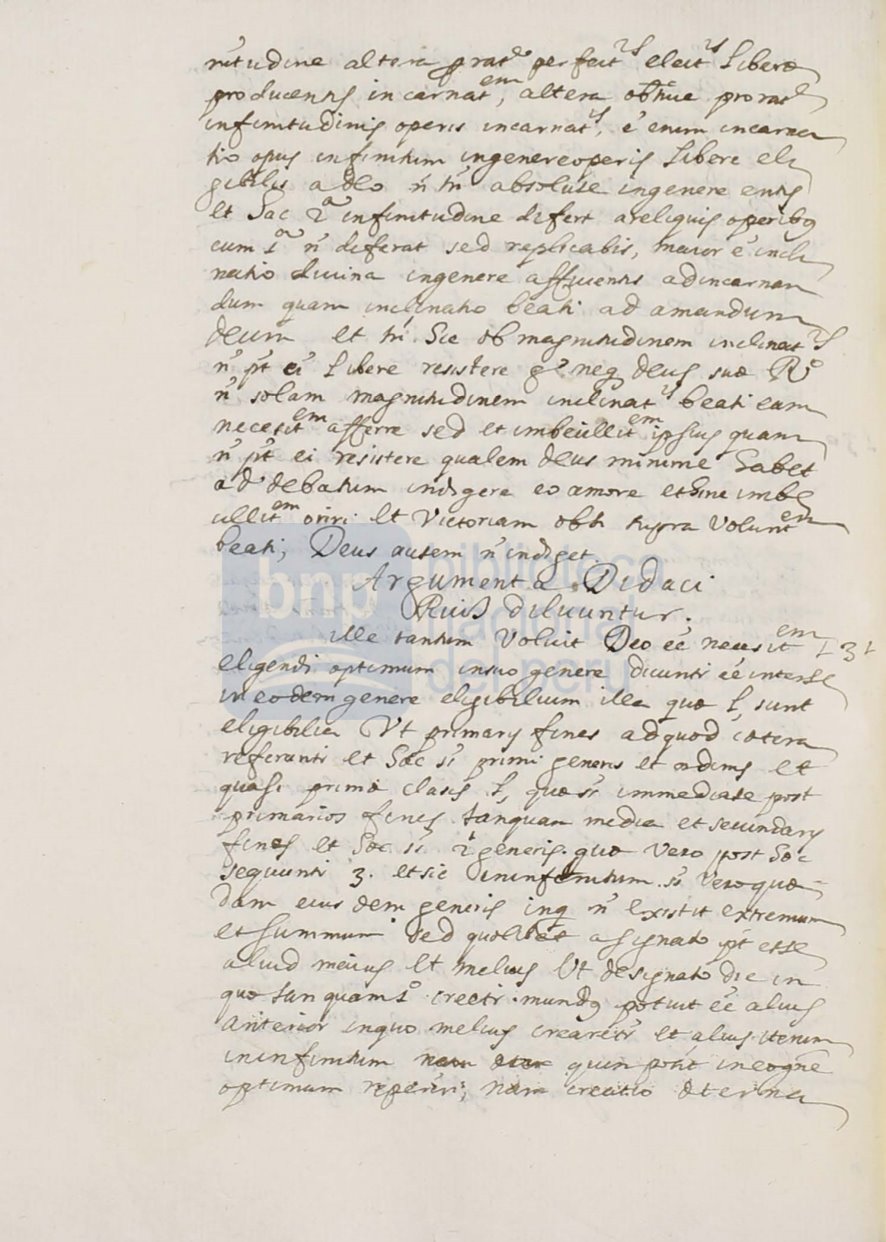 nitudine altera prat^e perfect^is elect^is Libere
producentis incarnat^em, altera obtinue prorat^e
infinitudinis operis incarnat^is, e enim incarna
tio opus infinitum ingenere operis Libere eli
gibilis adeo n tn absolute ingenere entis
et hac 2^a infinitudine difert a reliquis operibq
cum 1^a n diferat sed replicabis, maior e incli
natio divina ingenere afficientis ad incarnan
dum quam inclinatio beati ad amandum
deum et tn. Sic ob magnitudinem inclinat^is
n pt ei Libere resistere g^o neq deus suæ R^o
n solam magnitudinem inclinat^is beati eam
necesit^em afferre sed et imbecillit^em ipsius quam
n pt ei resistere qualem deus minime habet
ad debatum indigere eo amore et hinc imbe
cillit^em oriri et Victoriam obti supra Volunt^em
beati, Deus autem n indiget
Argumenta Didaci
Ruis diluuntur.
ille tantum Voluit Deo ee necesit^em 131
eligendi optimum insuo genere dicunti ee inter se
in eodem genere eligibilium illa quæ s, sunt
eligibilia Ut primary fines ad quod cætera
referunti et hæc st primi generis et ordinis et
quasi primæ clasis s, quæ st immediate post
primarios fines tanquam media et secundary
fines et hæc st 2^i generis. quæ Vero post hæc
sequunti 3. et sic ininfinitum. st Vero quæ
dam eius dem generis inq n existit extremum
et summum sed quolibet asignato pt esse
aliud maius et melius Ut designato die in
quo tanquam 1^o creati mundq potuit ee alius
anterior inquo melius crearetr et alius iterum
ininfinitum quin potit in eo gne
optimum reperiri; nam creatio æterna